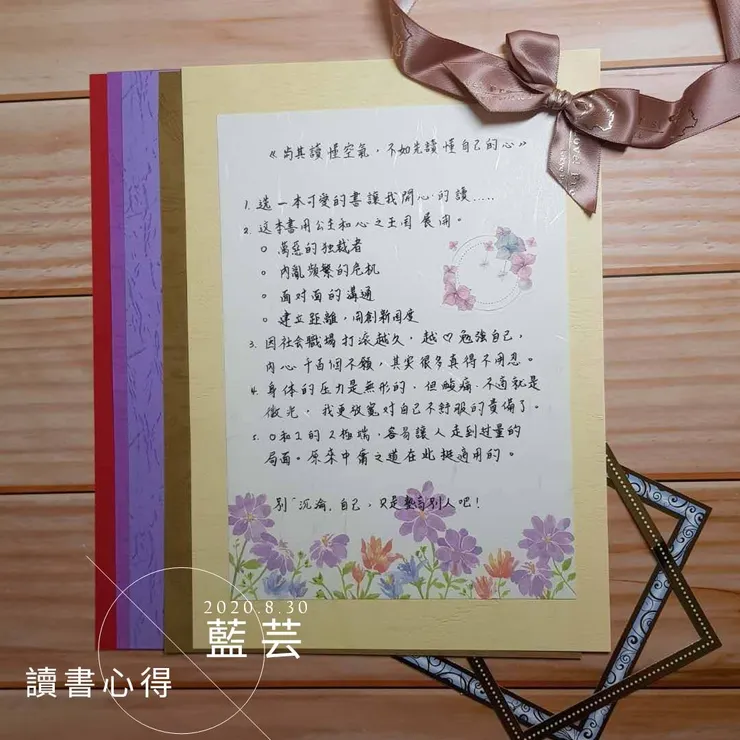 《與其讀懂空氣，不如先讀懂自己的心》
1. 選一本可愛的書讓我開心的讀.....
2. 这本書用公主和心之王国展開。
○ 萬惡的独裁者
○ 內亂頻繁的危机
○ 面对面的溝通
○ 建立距離，開創新国度
3. 因社會職場打滾越久，越♡勉強自己，
內心千百個不願，其实很多真得不用忍。
4. 身体的压力是無形的，但酸痛．不適就是
徵兆，我更放寬对自己不舒服的責備了。
5. 0和1的2極端，容易讓人走到过量的
局面。原來中庸之道在此挺適用的。
別"沉淪"自己，只是
別人吧！
2020.8.30
藍芸
讀書心得